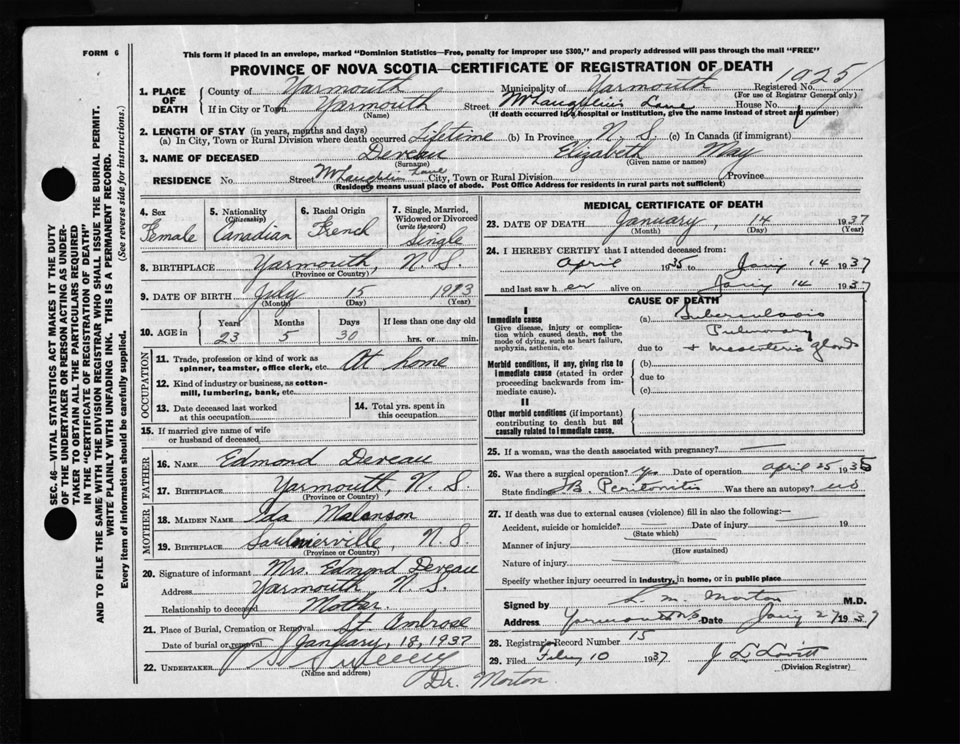 FORM 6
This form if placed in an envelope, marked "Dominion Statistics—Free, penalty for improper use $300," and properly addressed will pass through the mail "FREE"
PROVINCE OF NOVA SCOTIA—CERTIFICATE OF REGISTRATION OF DEATH
1925
SEC. 46—VITAL STATISTICS ACT MAKES IT THE DUTY
OF THE UNDERTAKER OR PERSON ACTING AS UNDER-
TAKER TO OBTAIN ALL THE PARTICULARS REQUIRED
IN THE "CERTIFICATE OF REGISTRATION OF DEATH"
AND TO FILE THE SAME WITH THE DIVISION REGISTRAR WHO SHALL ISSUE THE BURIAL PERMIT.
WRITE PLAINLY WITH UNFADING INK. THIS IS A PERMANENT RECORD.
Every item of information should be carefully supplied. (See reverse side for instructions.)
1. PLACE OF DEATH
County of Yarmouth Municipality of Yarmouth Registered No.
(For use of Registrar General only)
If in City or Town Yarmouth Street McLaughlin's Lane House No.
(Name) (If death occurred in a hospital or institution, give the name instead of street and number)
2. LENGTH OF STAY (in years, months and days)
(a) In City, Town or Rural Division where death occurred Lifetime (b) In Province N. S. (c) In Canada (if immigrant)
3. NAME OF DECEASED Deveau Elizabeth May
(Surname) (Given name or names)
RESIDENCE No. Street McLaughlin Lane City, Town or Rural Division Province
(Residence means usual place of abode. Post Office Address for residents in rural parts not sufficient)
4. Sex
Female
5. Nationality
(Citizenship)
Canadian
6. Racial Origin
French
7. Single, Married,
Widowed or Divorced
(write the word)
Single
8. BIRTHPLACE Yarmouth, N. S.
(Province or Country)
9. DATE OF BIRTH July 15 1913
(Month) (Day) (Year)
10. AGE in
Years Months Days If less than one day old
23 5 30 hrs. or min.
OCCUPATION
11. Trade, profession or kind of work as
spinner, teamster, office clerk, etc. At home
12. Kind of industry or business, as cotton-
mill, lumbering, bank, etc.
13. Date deceased last worked
at this occupation
14. Total yrs. spent in
this occupation
15. If married give name of wife
or husband of deceased
FATHER
16. NAME Edmond Deveau
17. BIRTHPLACE Yarmouth, N. S.
(Province or Country)
MOTHER
18. MAIDEN NAME Ida Malanson
19. BIRTHPLACE Saulnierville, N. S.
(Province or Country)
20. Signature of informant Mrs. Edmond Deveau
Address Yarmouth N. S.
Relationship to deceased Mother.
21. Place of Burial, Cremation or Removal St. Ambrose
Date of burial or removal January, 18, 1937
22. UNDERTAKER
(Name and address)
Dr. Morton.
MEDICAL CERTIFICATE OF DEATH
23. DATE OF DEATH January, 14 1937
(Month) (Day) (Year)
24. I HEREBY CERTIFY that I attended deceased from:
April 1935 to Jany 14 1937
and last saw her alive on Jany 14 1937
CAUSE OF DEATH
I
Immediate cause
Give disease, injury or complica-
tion which caused death, not the
mode of dying, such as heart failure,
asphyxia, asthenia, etc
(a) Tuberculosis
Pulmonary
due to + mesenteric glands
Morbid conditions, if any, giving rise to
immediate cause (stated in order
proceeding backwards from im-
mediate cause).
(b)
due to
(c)
II
Other morbid conditions (if important)
contributing to death but not
causally related to immediate cause.
25. If a woman, was the death associated with pregnancy?
26. Was there a surgical operation? Yes Date of operation April 25 1935
State finding T.B. Peritonitis Was there an autopsy? no
27. If death was due to external causes (violence) fill in also the following:—
Accident, suicide or homicide? Date of injury 19
(State which)
Manner of injury
(How sustained)
Nature of injury
Specify whether injury occurred in industry, in home, or in public place
Signed by L. M. Morton M.D.
Address Yarmouth NS Date Jany 27 1937
28. Registrar's Record Number 15
29. Filed Feby 10 1937
(Division Registrar)